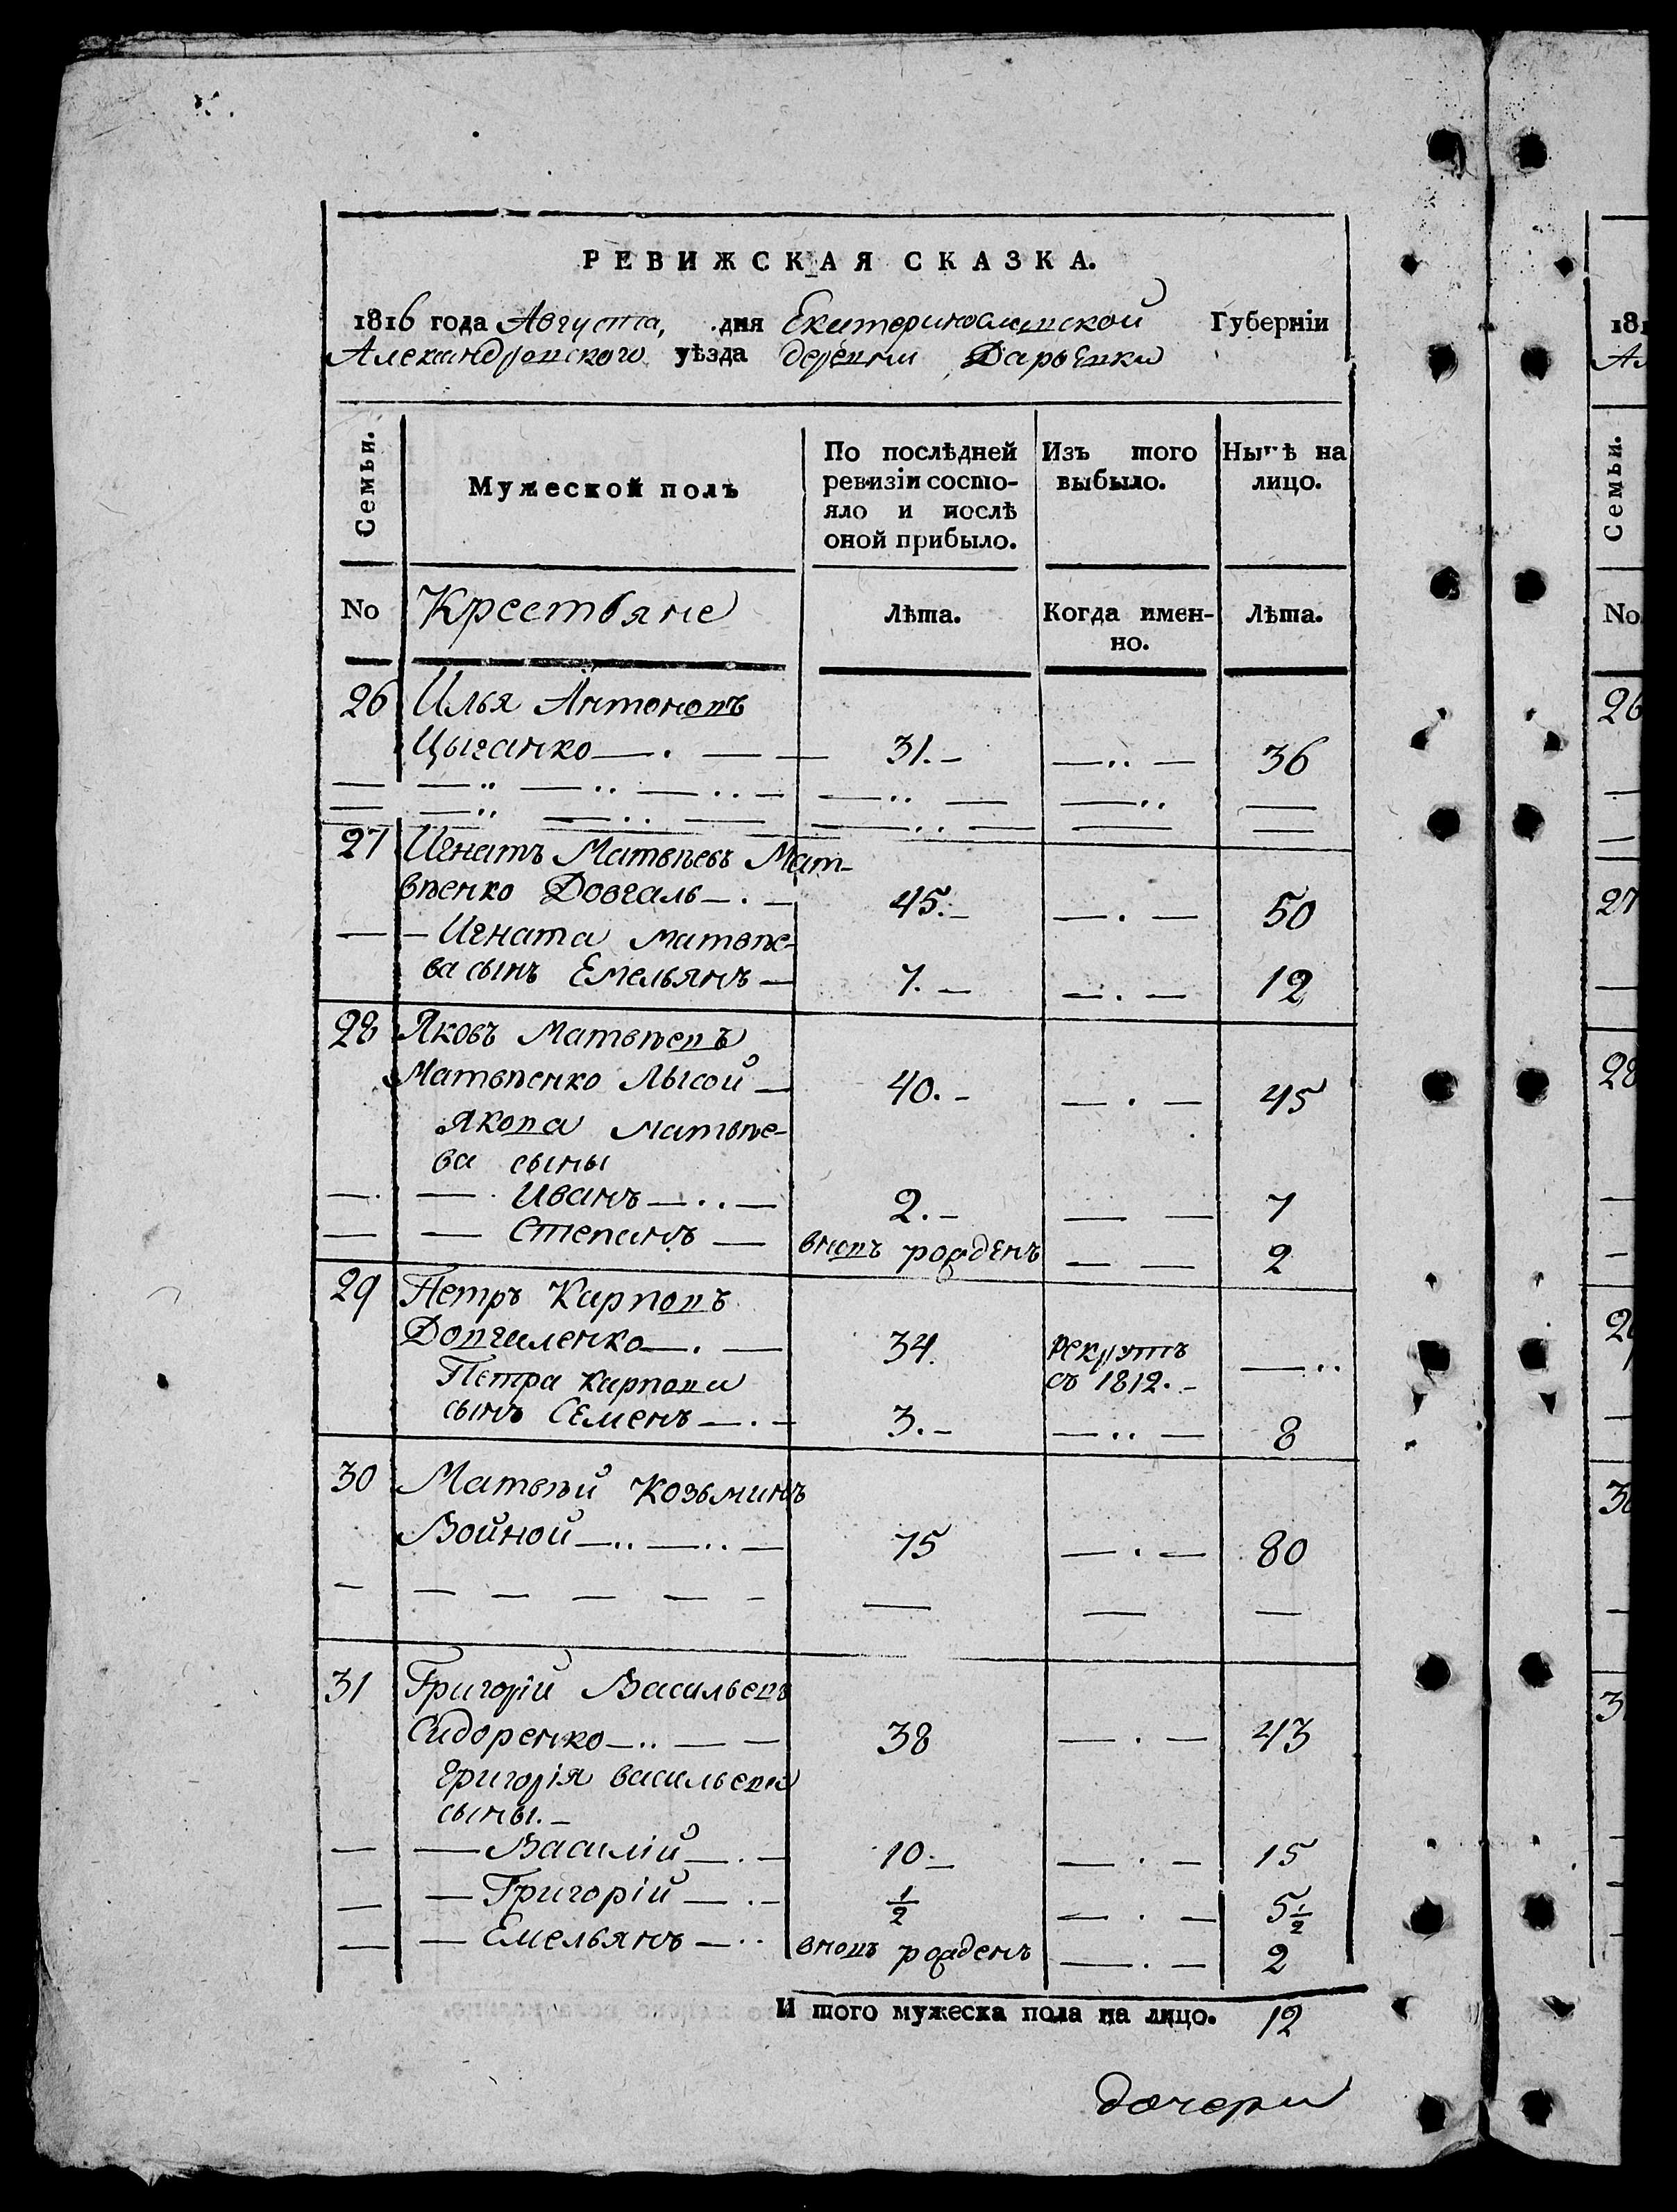 РЕВИЖСКАЯ СКАЗКА.
1816 года Августа, дня Екатеринославской Губерніи
Александровского уѣзда деревни Дарьевки
Семьи.
Мужеской полъ
По послѣдней ревизіи состо-яло и послѣ оной прибыло.
Изъ того выбыло.
Нынѣ на лицо.
No Крестьяне Лѣта. Когда имен-но. Лѣта.
26 Илья Антоновъ
Цыганко 31. 36
27 Игнатъ Матвѣевъ Мат-
вѣенко Довгаль 45. 50
Игната Матвѣе-
ва сынъ Емельянъ 7. 12
28 Яковъ Матвѣевъ
Матвѣенко Лысой 40. 45
Якова Матвѣе-
ва сыны
Иванъ 2. 7
Степанъ вновь рожденъ 2
29 Петръ Карповъ
Довгаленко 34. рекрутъ
съ 1812.
Петра Карпова
сынъ Семенъ 3. 8
30 Матвѣй Козьминъ
Войной 75 80
31 Григорій Васильевъ
Сидоренко 38 43
Григорія Васильева
сыны.
Василій 10. 15
Григорій 1/2 5 1/2
Емельянъ вновь рожденъ 2
И того мужеска пола на лицо. 12
дочери
181
Ал
Семьи.
No
26
27
28
29
30
31